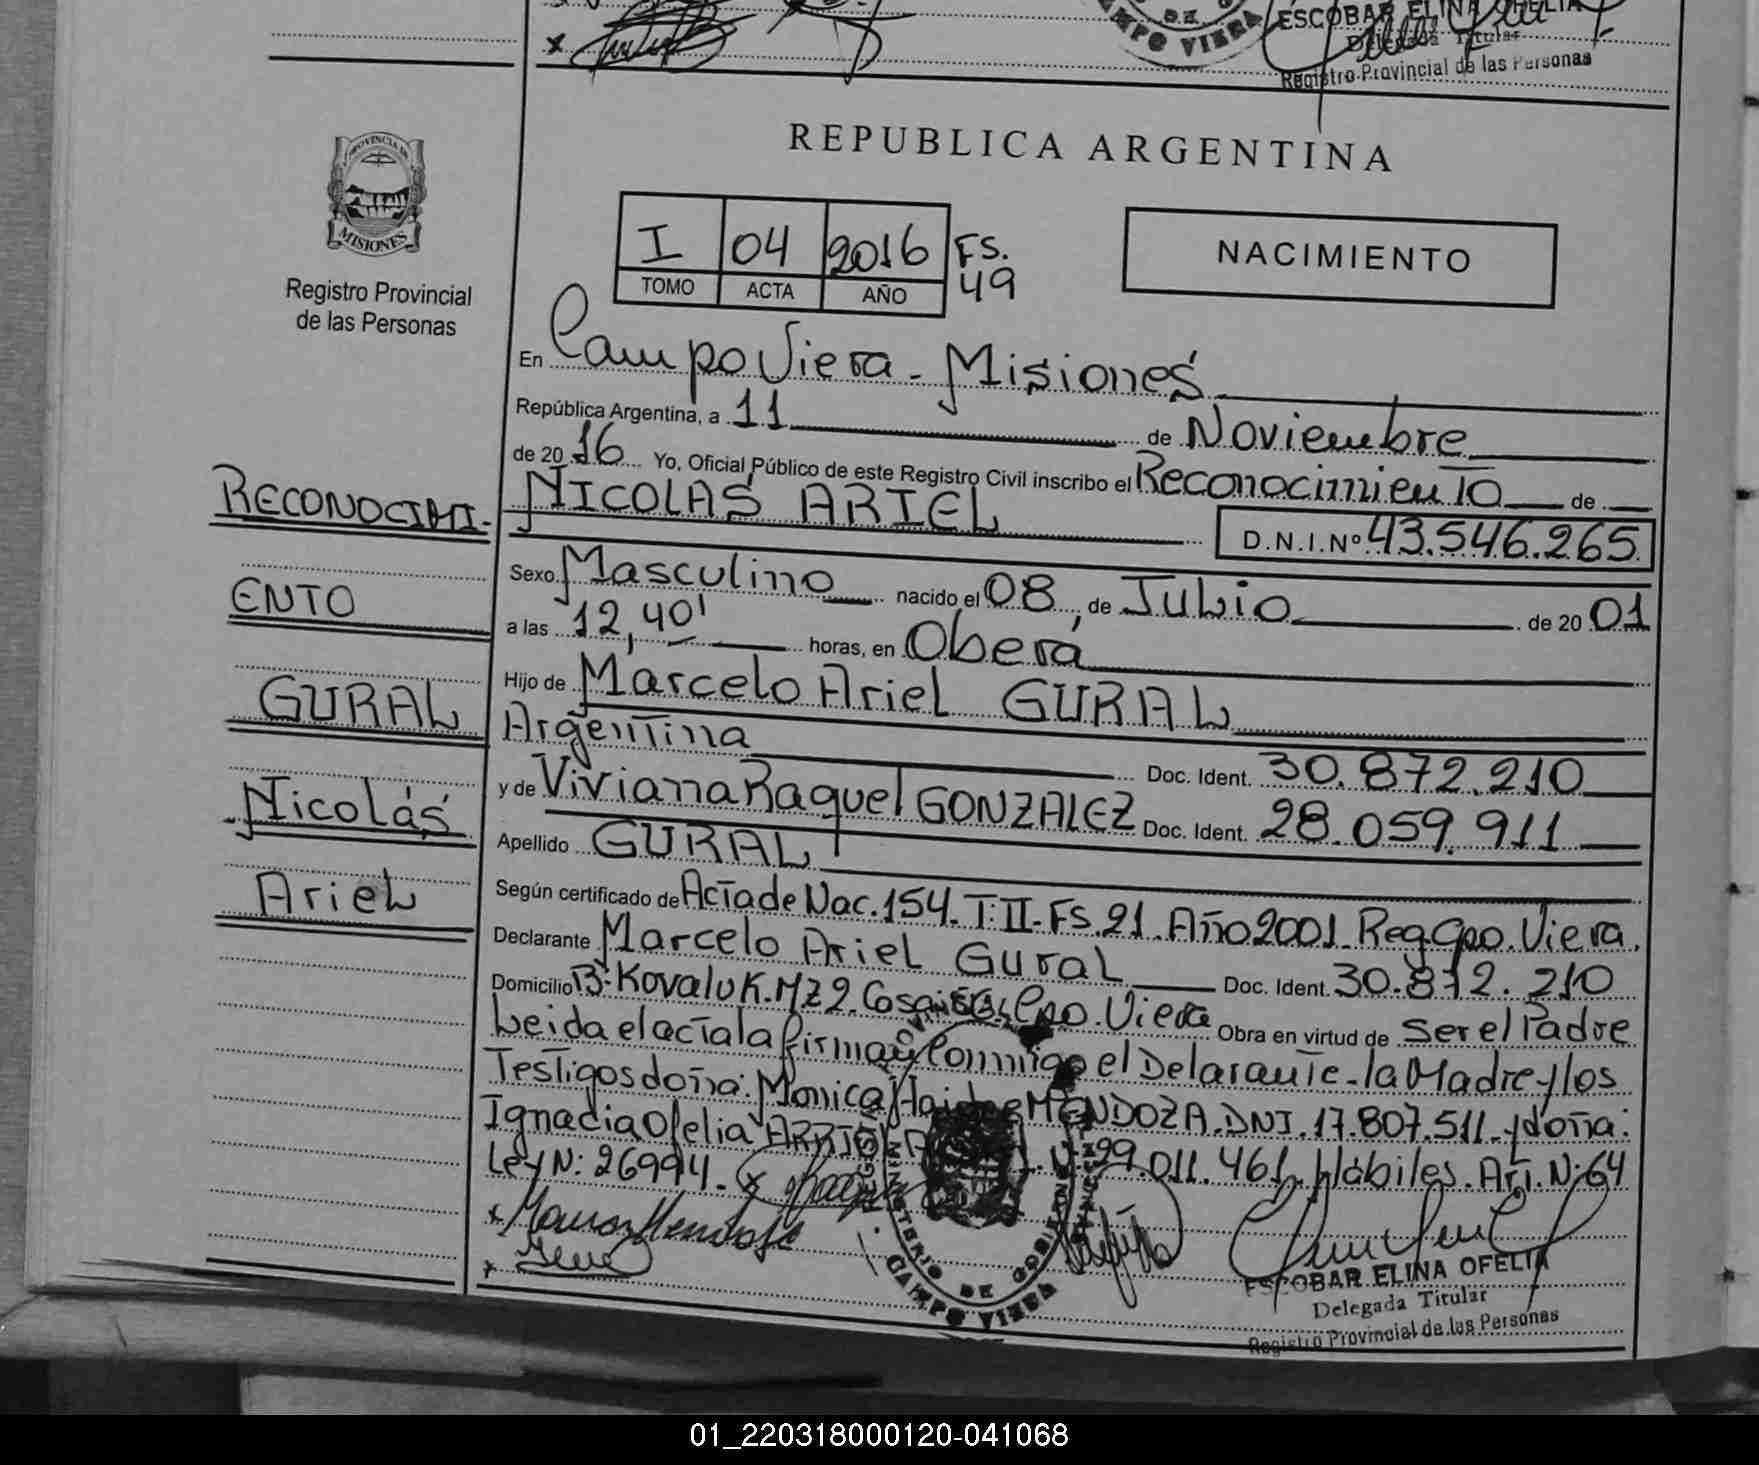 ESCOBAR ELINA OFELIA
Delegada Titular
Registro Provincial de las Personas
CAMPO VIERA
PROVINCIA DE
MISIONES
Registro Provincial
de las Personas
REPUBLICA ARGENTINA
I 04 2016 FS.
49
TOMO ACTA AÑO
NACIMIENTO
En Campo Viera - Misiones
República Argentina, a 11 de Noviembre
de 20 16 Yo, Oficial Público de este Registro Civil inscribo el Reconocimiento de
NICOLAS ARIEL
D.N.I.Nº 43.546.265
Sexo Masculino nacido el 08 de Julio de 20 01
a las 12,40' horas, en Oberá
Hijo de Marcelo Ariel GURAL
Argentina Doc. Ident. 30.872.210
y de Viviana Raquel GONZALEZ Doc. Ident. 28.059.911
Apellido GURAL
Según certificado de Acta de Nac. 154. T: II - FS. 21. Año 2001. Reg Cpo. Viera.
Declarante Marcelo Ariel Gural Doc. Ident. 30.872.210
Domicilio B: Kovaluk. MZ 2. Casa Cpo. Viera Obra en virtud de Ser el Padre
Leida el acta la firman Conmigo el Delarante - la Madre y los
Testigos doña: Monica MENDOZA. DNI. 17.807.511 - y doña:
Ignacia Ofelia 011.461. Hábiles. Art. N: 64
Ley N: 26994.
RECONOCIMI-
ENTO
GURAL
Nicolás
Ariel
MINISTERIO DE GOBIERNO
CAMPO VIERA
ESCOBAR ELINA OFELIA
Delegada Titular
Registro Provincial de las Personas
01_220318000120-041068